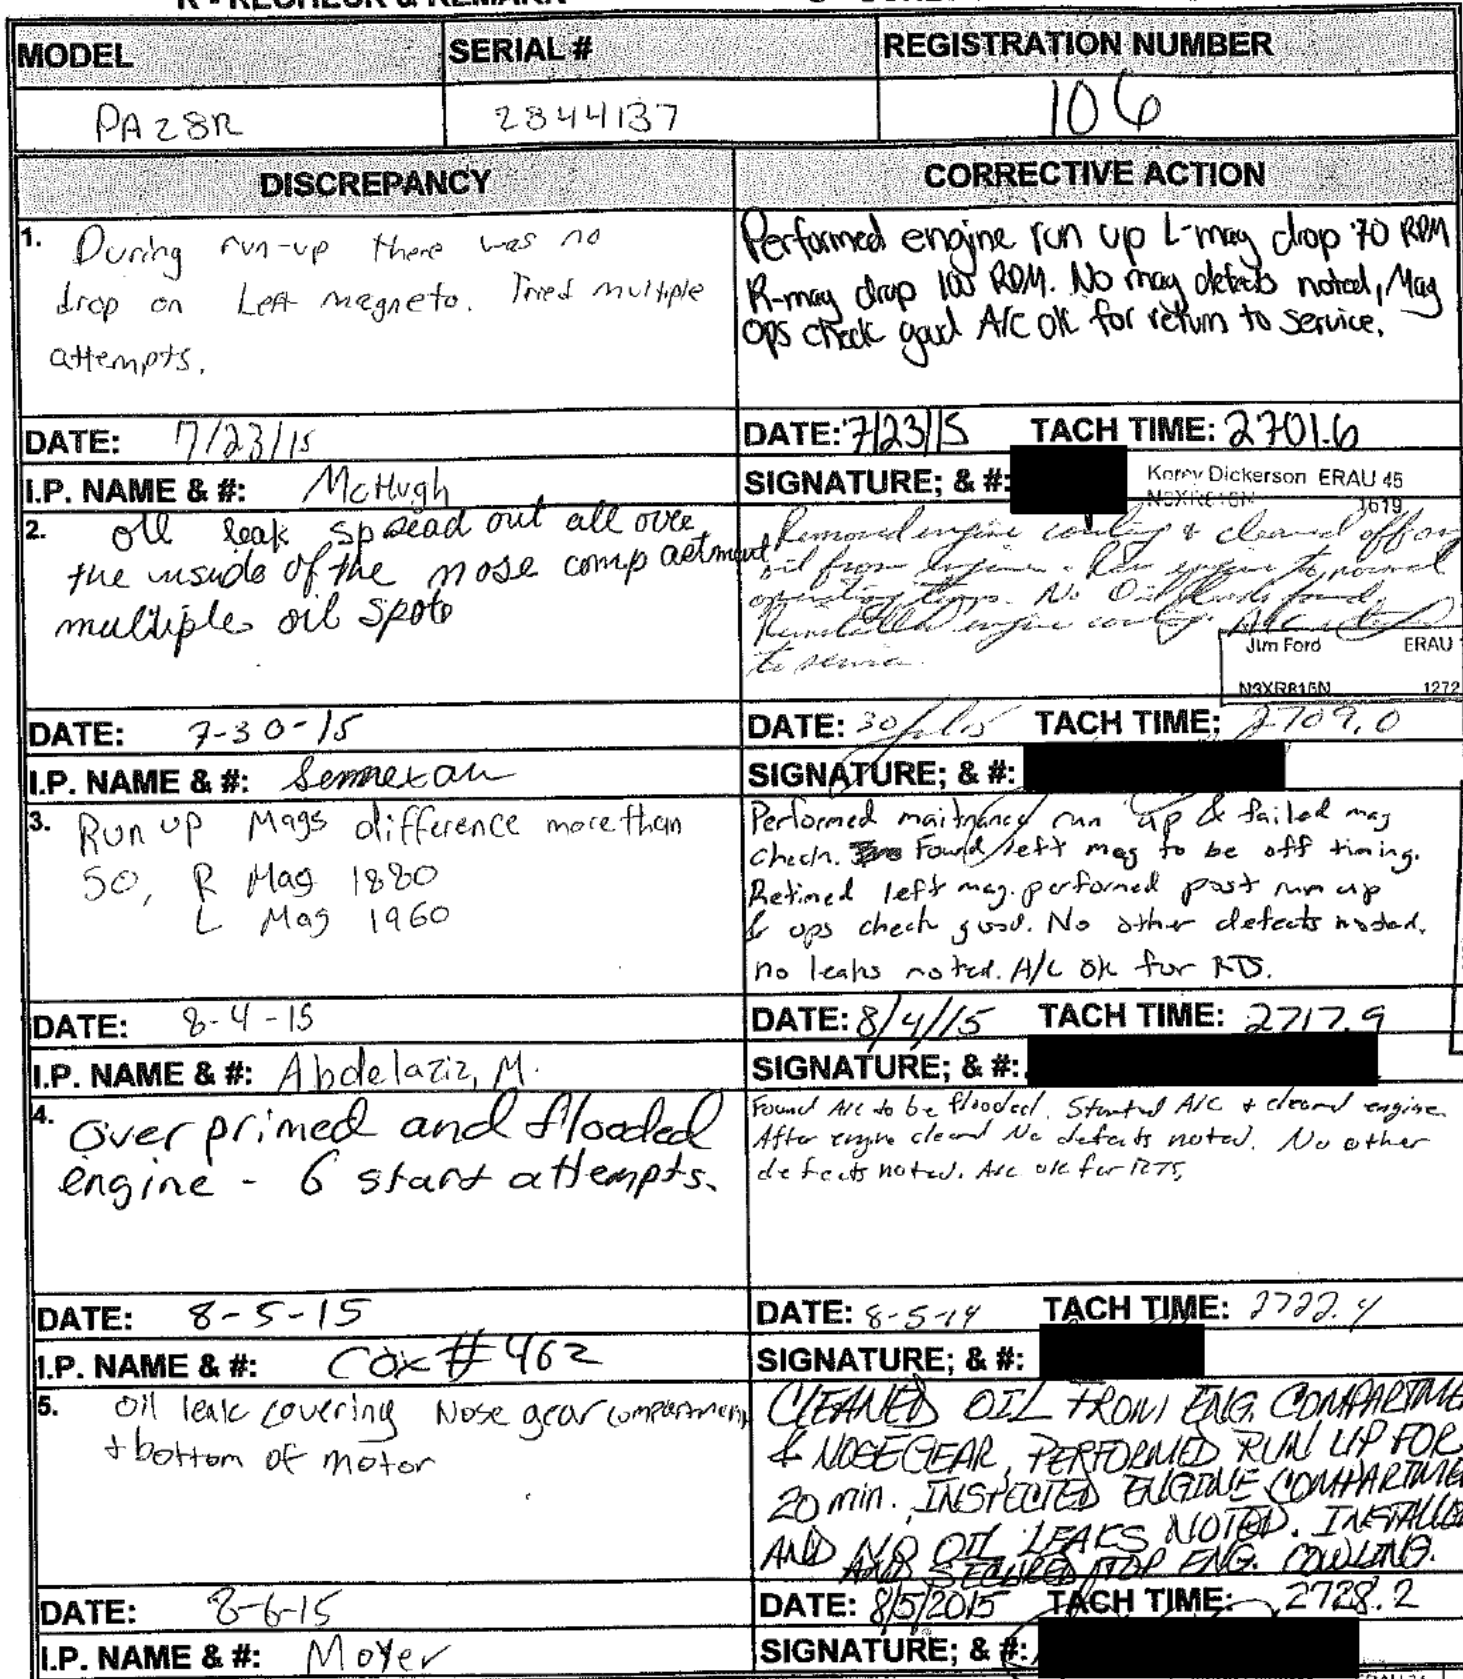 MODEL SERIAL # REGISTRATION NUMBER
PA28R 2844137 106
DISCREPANCY CORRECTIVE ACTION
1. During run-up there was no
drop on Left magneto. Tried multiple
attempts.
Performed engine run up L-mag drop 70 RPM
R-mag drop 100 RPM. No mag defects noted, Mag
ops check good A/C ok for return to service.
DATE: 7/23/15 DATE: 7/23/15 TACH TIME: 2701.6
I.P. NAME & #: McHugh SIGNATURE; & #: Korry Dickerson ERAU 45
N3XR816N 1619
2. oil leak spread out all over
the inside of the nose compartment
multiple oil spots
Removed engine cowling & cleaned off
oil from engine. Ran engine to normal
operating temps. No Oil leaks found.
Reinstalled engine cowling. A/C
to service.
Jim Ford ERAU
N3XR816N 1272
DATE: 7-30-15 DATE: 30/ /15 TACH TIME: 2709.0
I.P. NAME & #: SIGNATURE; & #:
3. Run up Mags difference more than
50, R Mag 1880
L Mag 1960
Performed maitnancy run up & failed mag
check. Found left mag to be off timing.
Retimed left mag. performed post run up
& ops check good. No other defects noted.
no leaks noted. A/C ok for RTS.
DATE: 8-4-15 DATE: 8/4/15 TACH TIME: 2717.9
I.P. NAME & #: Abdelaziz, M. SIGNATURE; & #:
4. Over primed and flooded
engine - 6 start attempts.
Found A/C to be flooded. Started A/C & cleared engine.
After engine cleard No defects noted. No other
defects noted. A/C ok for RTS,
DATE: 8-5-15 DATE: 8-5-14 TACH TIME: 2722.4
I.P. NAME & #: Cox #462 SIGNATURE; & #:
5. Oil leak covering Nose gear compartment
& bottom of motor
CLEANED OIL FROM ENG. COMPARTME
& NOSEGEAR, PERFORMED RUN UP FOR
20 min. INSPECTED ENGINE COMPARTME
AND NO OIL LEAKS NOTED. INSTALLED
AND SECURED TOP ENG. COWLING.
DATE: 8-6-15 DATE: 8/5/2015 TACH TIME: 2728.2
I.P. NAME & #: Moyer SIGNATURE; & #: